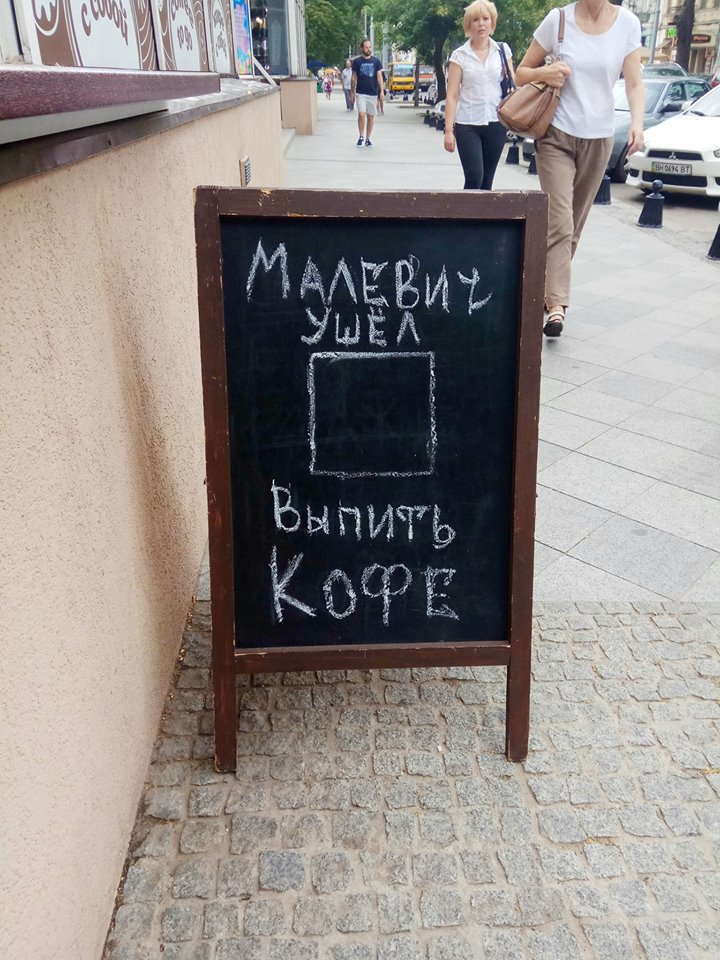 с собой
МАЛЕВИЧ
УШЁЛ
ВЫПИТЬ
КОФЕ
ВН 0694 ВТ